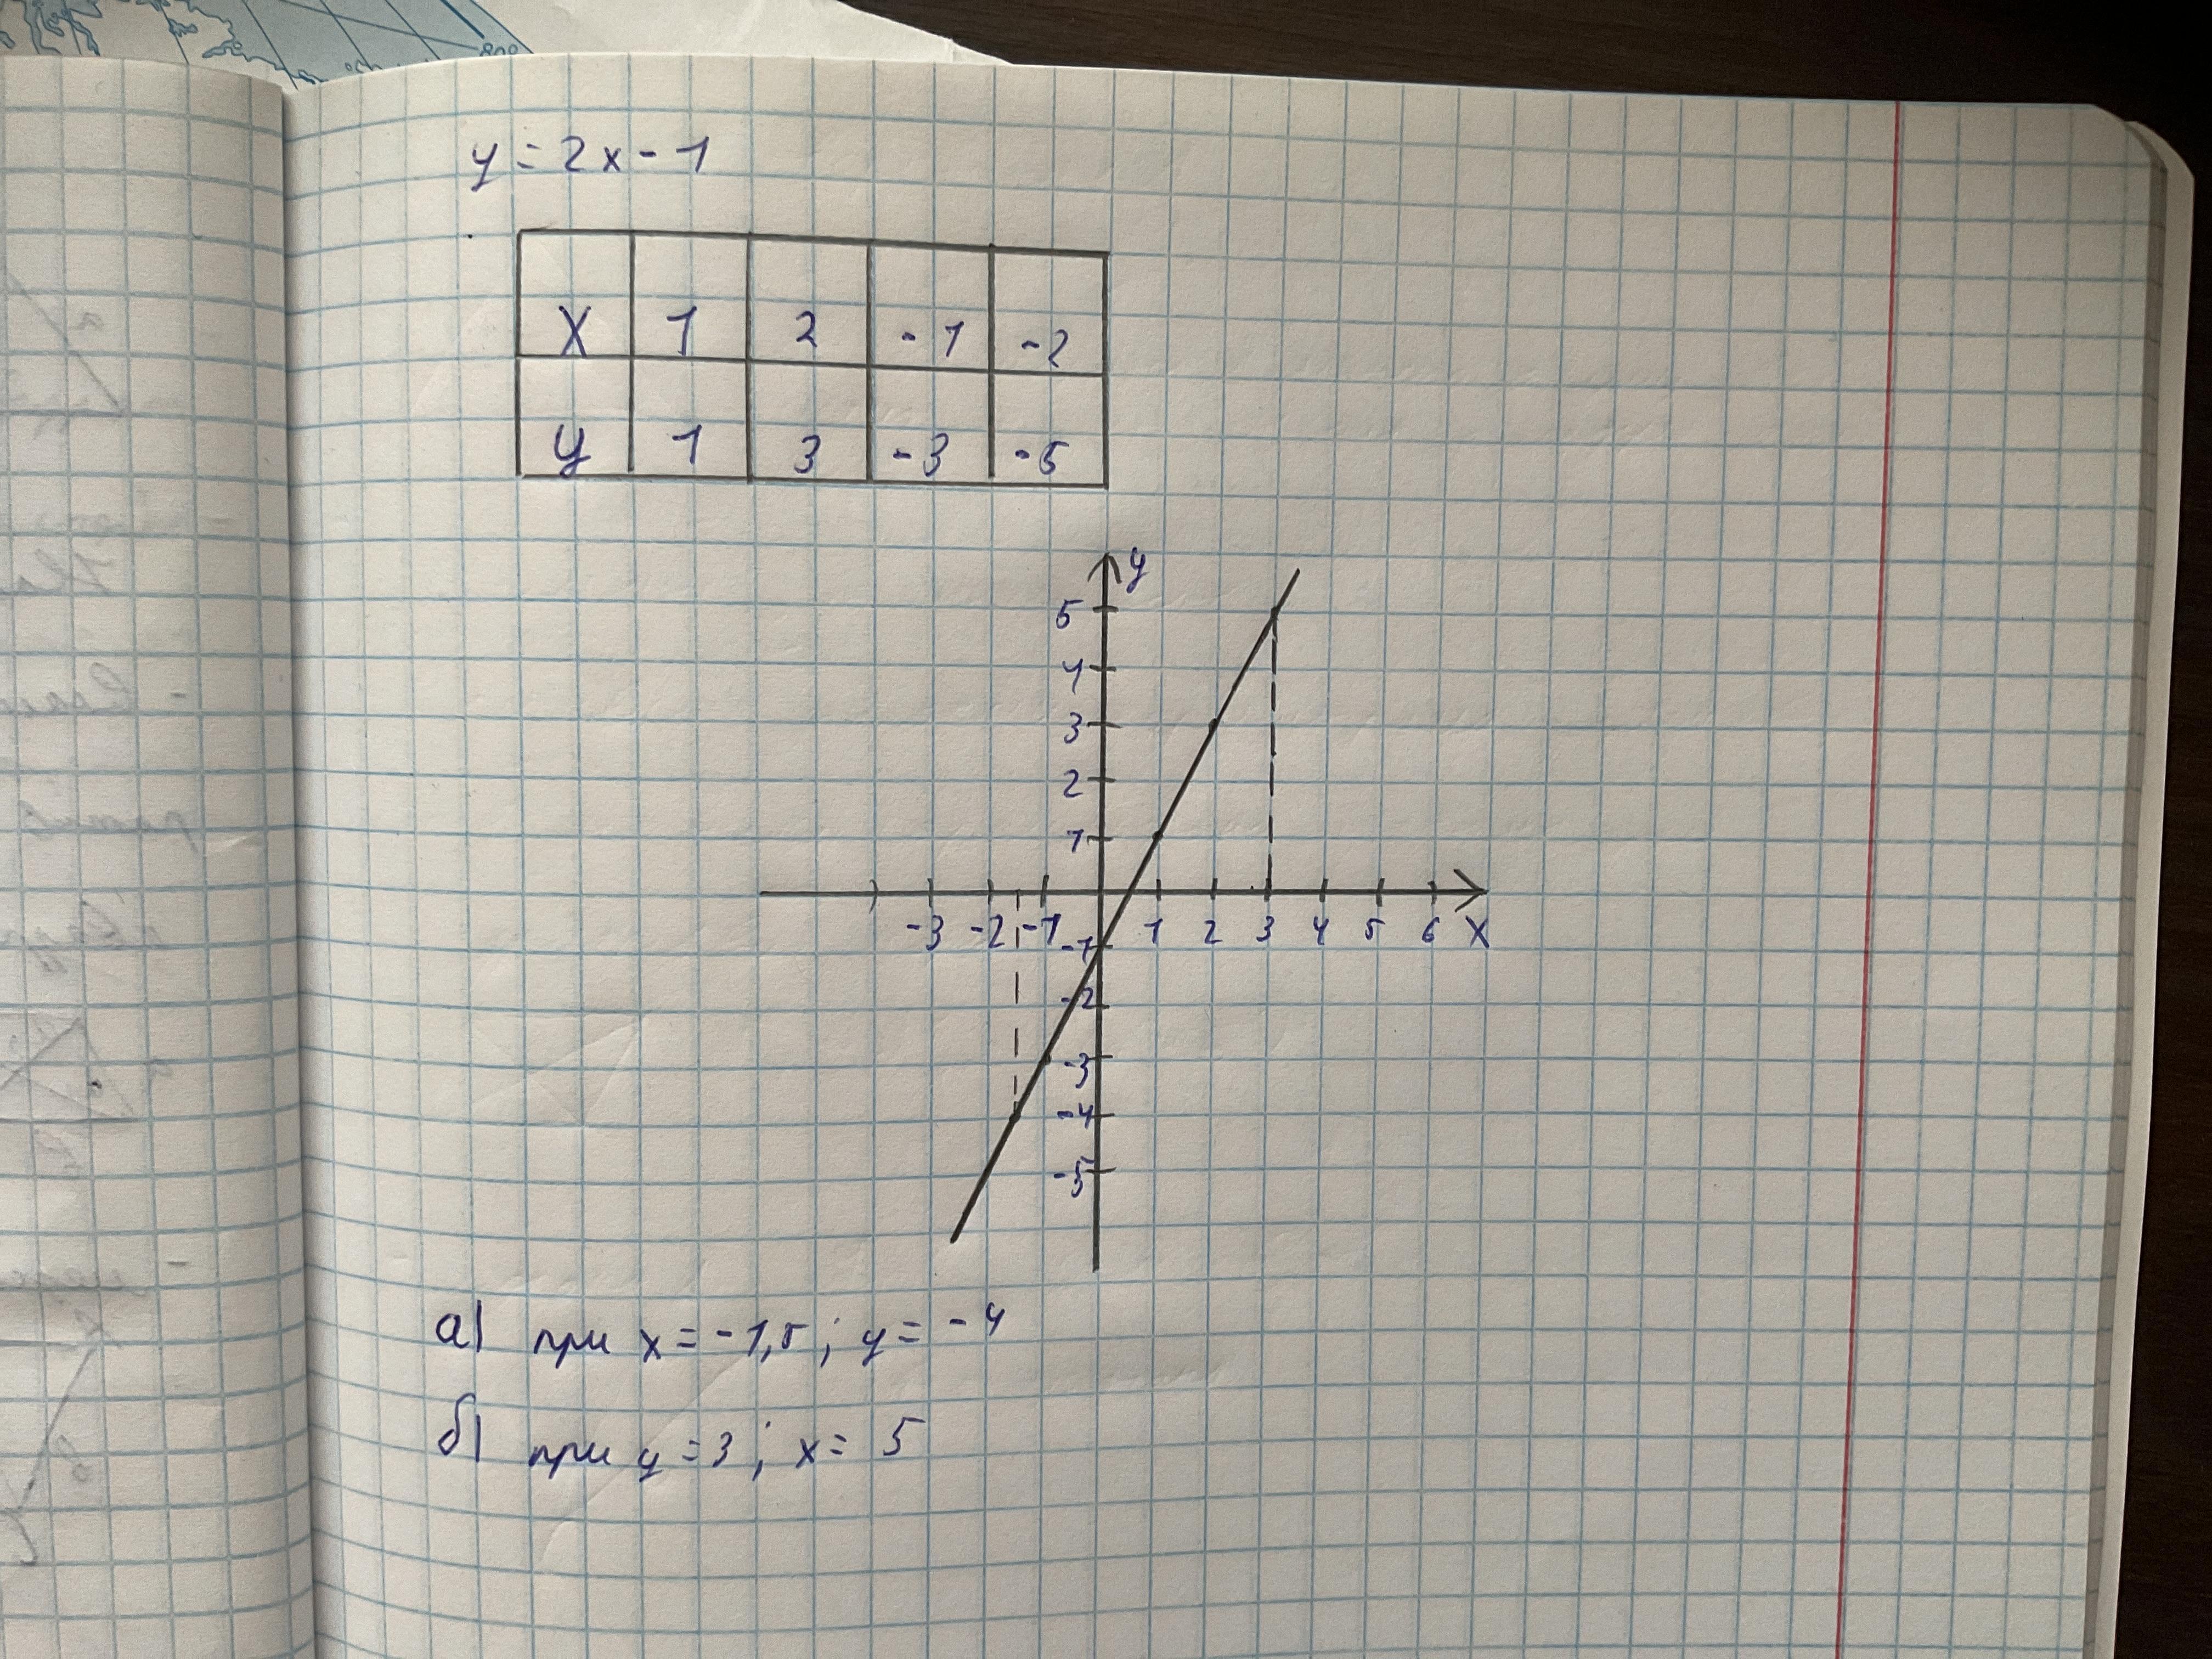 80°
y = 2x - 1
x 1 2 -1 -2
y 1 3 -3 -5
y
5
4
3
2
1
-3 -2 -1 1 2 3 4 5 6 x
-1
-2
-3
-4
-5
а) при x = -1,5 ; y = -4
б) при y = 3 ; x = 5